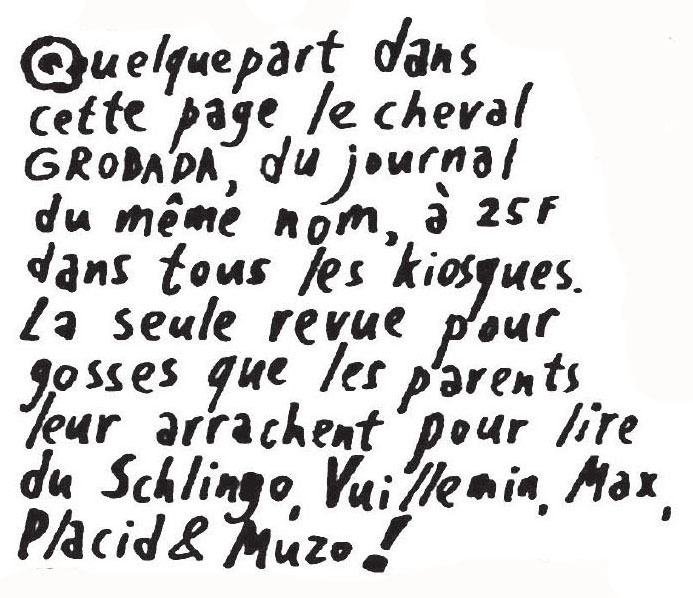 Quelquepart dans
cette page le cheval
GRODADA, du journal
du même nom, à 25F
dans tous les kiosques.
La seule revue pour
gosses que les parents
leur arrachent pour lire
du Schlingo, Vuillemin, Max,
Placid & Muzo !